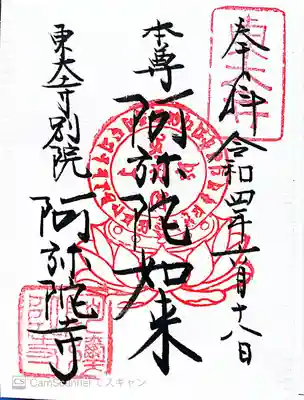 奉拝 令和四年六月十八日
本尊 阿弥陀如来
東大寺別院
阿弥陀寺
CS CamScannerでスキャン